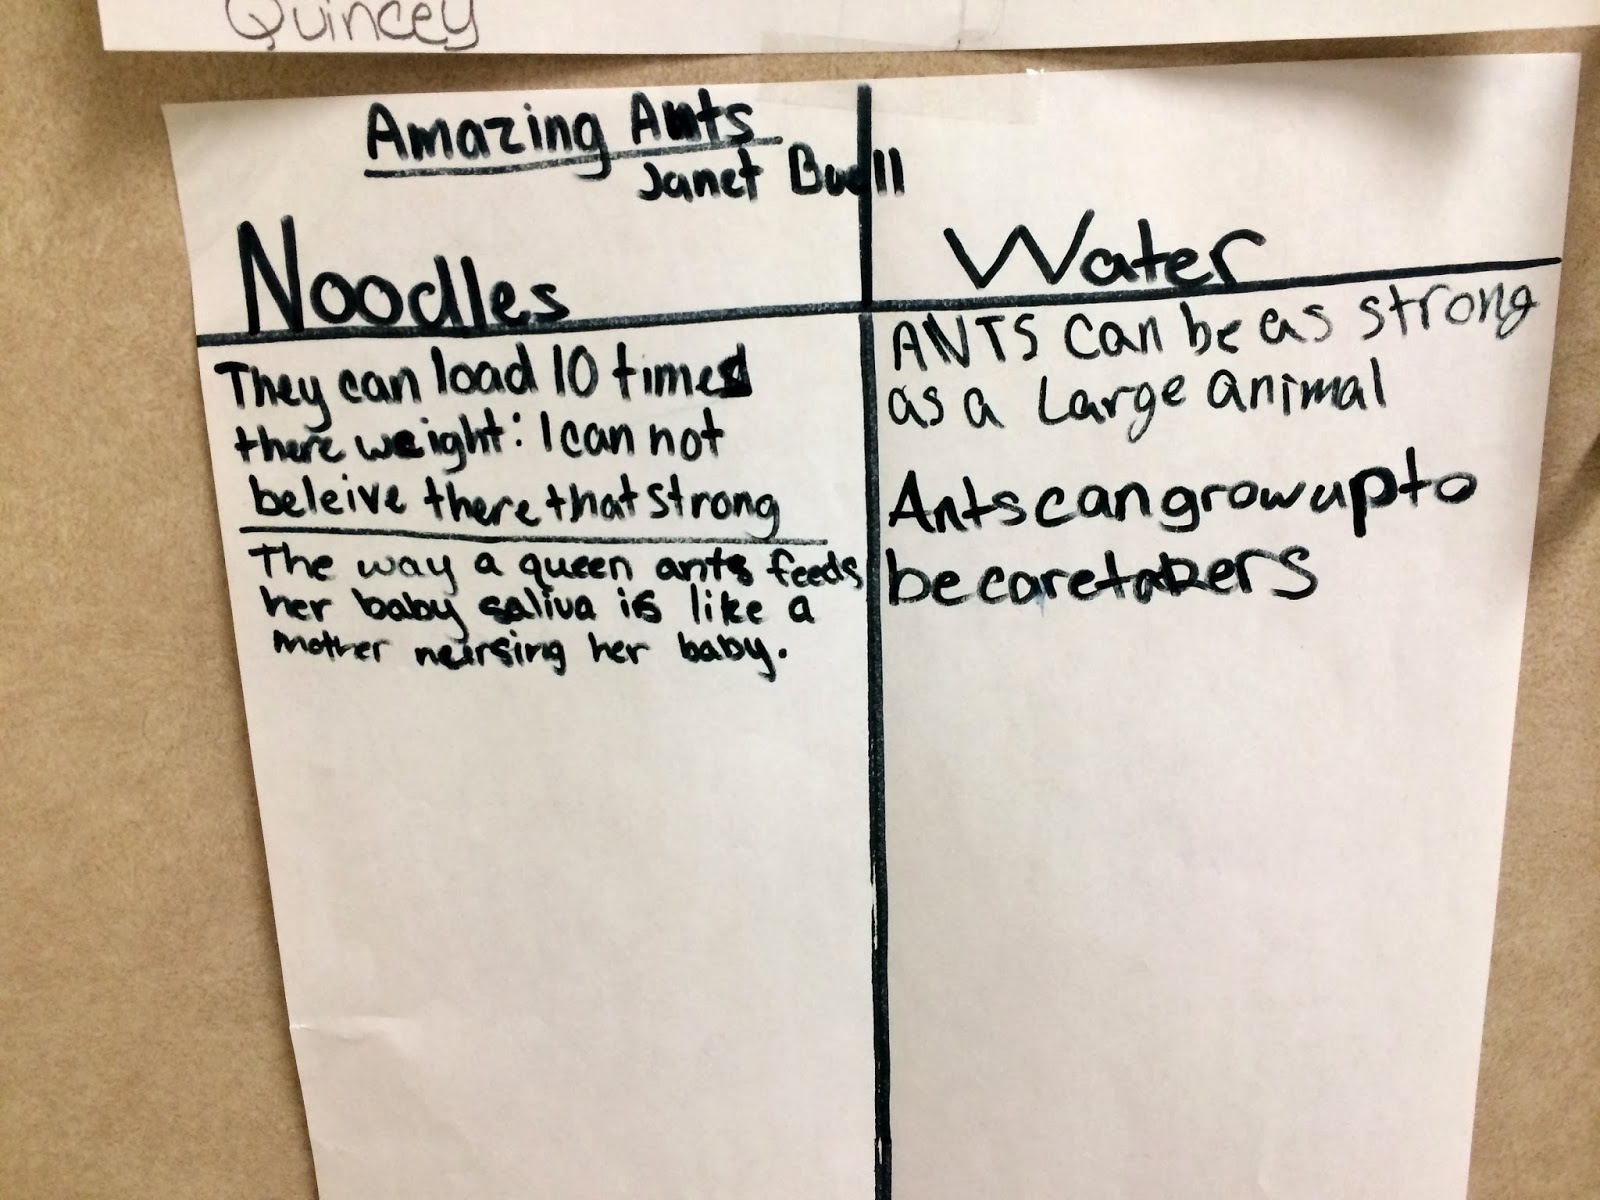 Quincey
Amazing Ants
Janet Buell
Noodles
They can load 10 times
there weight: I can not
beleive there that strong
The way a queen ants feeds
her baby saliva is like a
mother nursing her baby.
Water
ANTS can be as strong
as a Large animal
Ants can grow up to
be caretakers